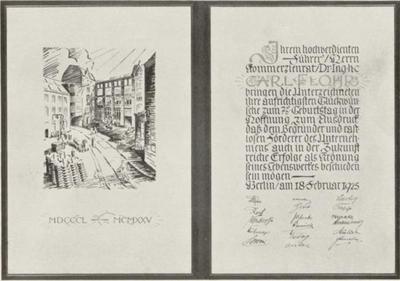 MDCCCL MCMXXV
Ihrem hochverdienten
Führer / Herrn
Kommerzienrat / Dr Ing hc
CARL FLOHR
bringen die Unterzeichneten
ihre aufrichtigsten Glückwün-
sche zum 75 Geburtstag in der
Hoffnung zum Ausdruck
daß dem Begründer und rast-
losen Förderer des Unterneh-
mens auch in der Zukunft
reiche Erfolge als Krönung
seines Lebenswerkes beschieden
sein mögen
Berlin / am 18 Februar 1925